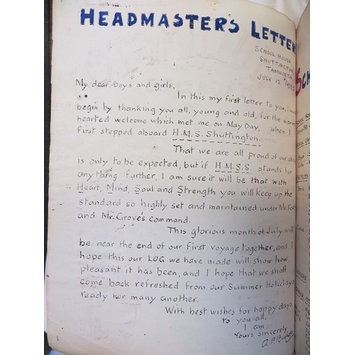 HEADMASTER'S LETTER
SCHOOL HOUSE
SHUTTINGTON
My dear boys and girls,
In this my first letter to you, I
begin by thanking you all, young and old, for the warm
hearted welcome which met me on May Day, when I
first stepped aboard H.M.S. Shuttington.
That we are all proud of our
is only to be expected, but if H.M.S. stands for
anything further, I am sure it will be that with
Heart, Mind, Soul and Strength you will keep up the
standard so highly set and maintained under Mr.
and Mr. Grove's command.
This glorious month of July will
be near the end of our first voyage together, and I
hope this our LOG we have made will show how
pleasant it has been, and I hope that we shall
come back refreshed from our Summer Holidays
ready for many another.
With best wishes for happy days
to you all,
I am
Yours sincerely,